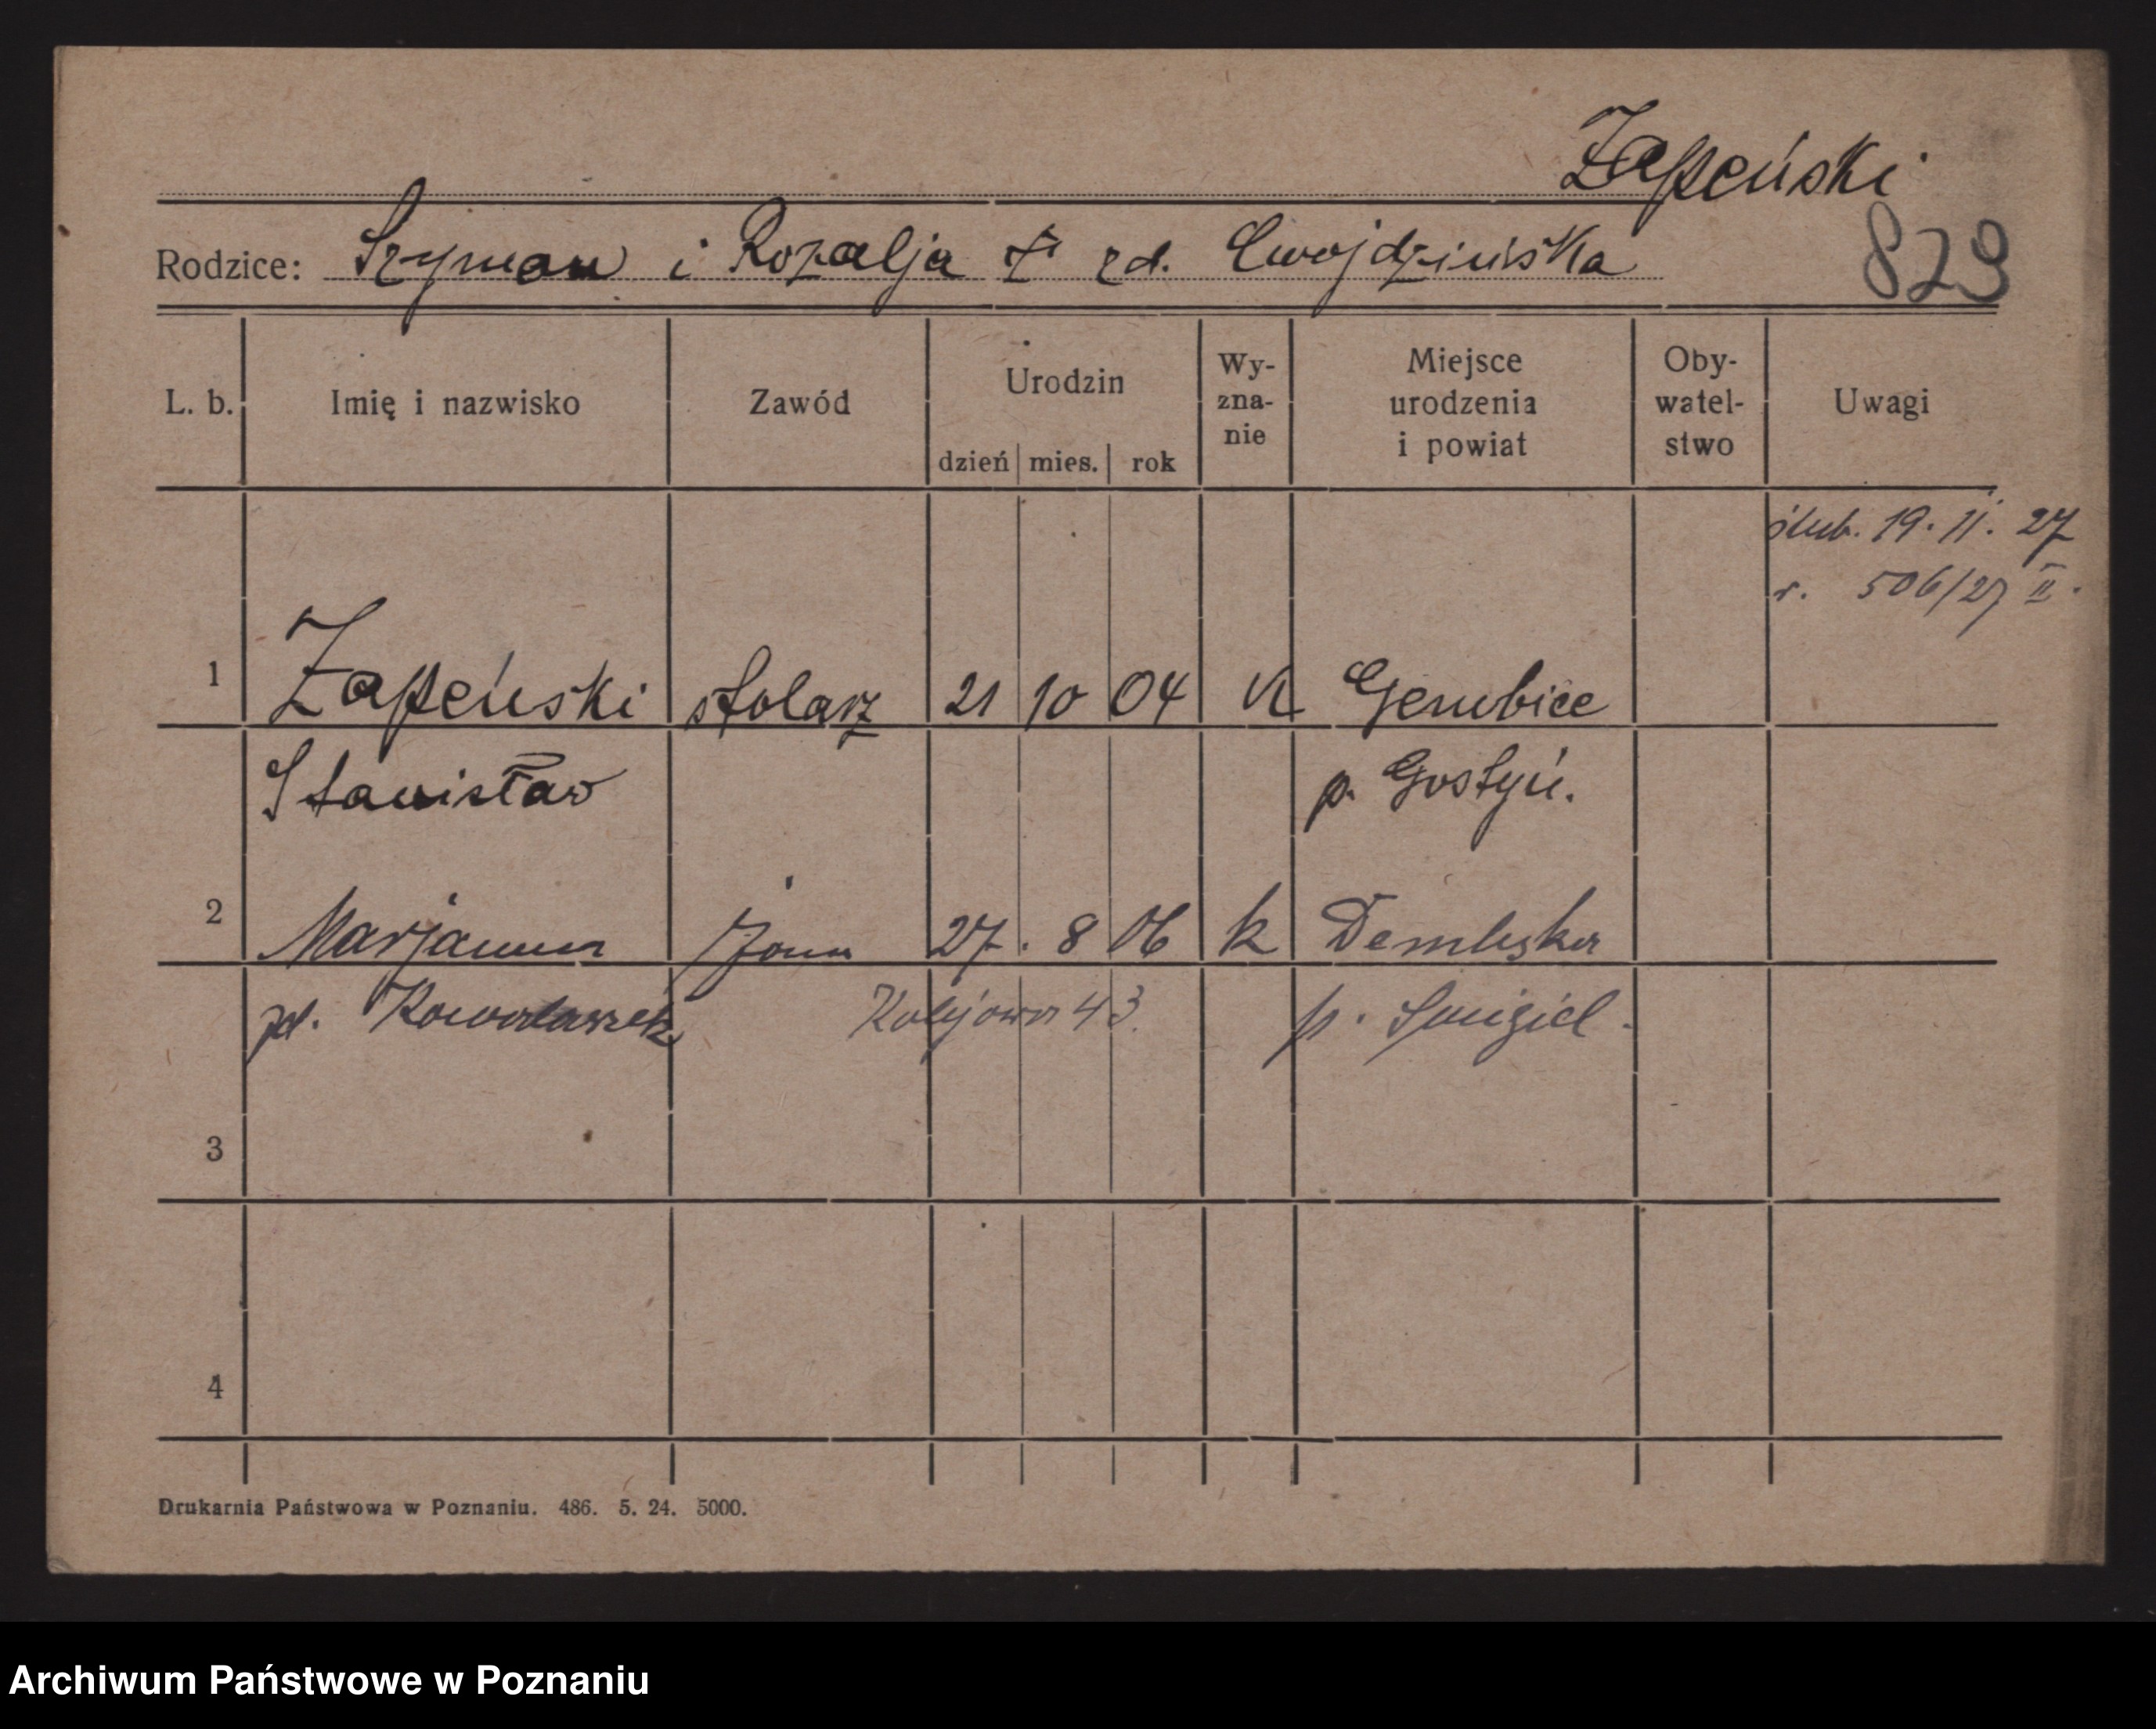 Zapeński
829
Rodzice: Szyman i Rozalja Ż zd. Cwojdzińska
L. b. Imię i nazwisko Zawód Urodzin dzień mies. rok Wy-zna-nie Miejsce urodzenia i powiat Oby-watel-stwo Uwagi
ślub. 19. 11. 27
r. 506/27 II.
1 Żapeński stolarz 21 10 04 K Gembice
Stanisław p. Gostyń.
2 Marjanna żona 27. 8 06 k
zd. Kolejowa 43. p. Śmigiel.
3
4
Drukarnia Państwowa w Poznaniu. 486. 5. 24. 5000.
Archiwum Państwowe w Poznaniu